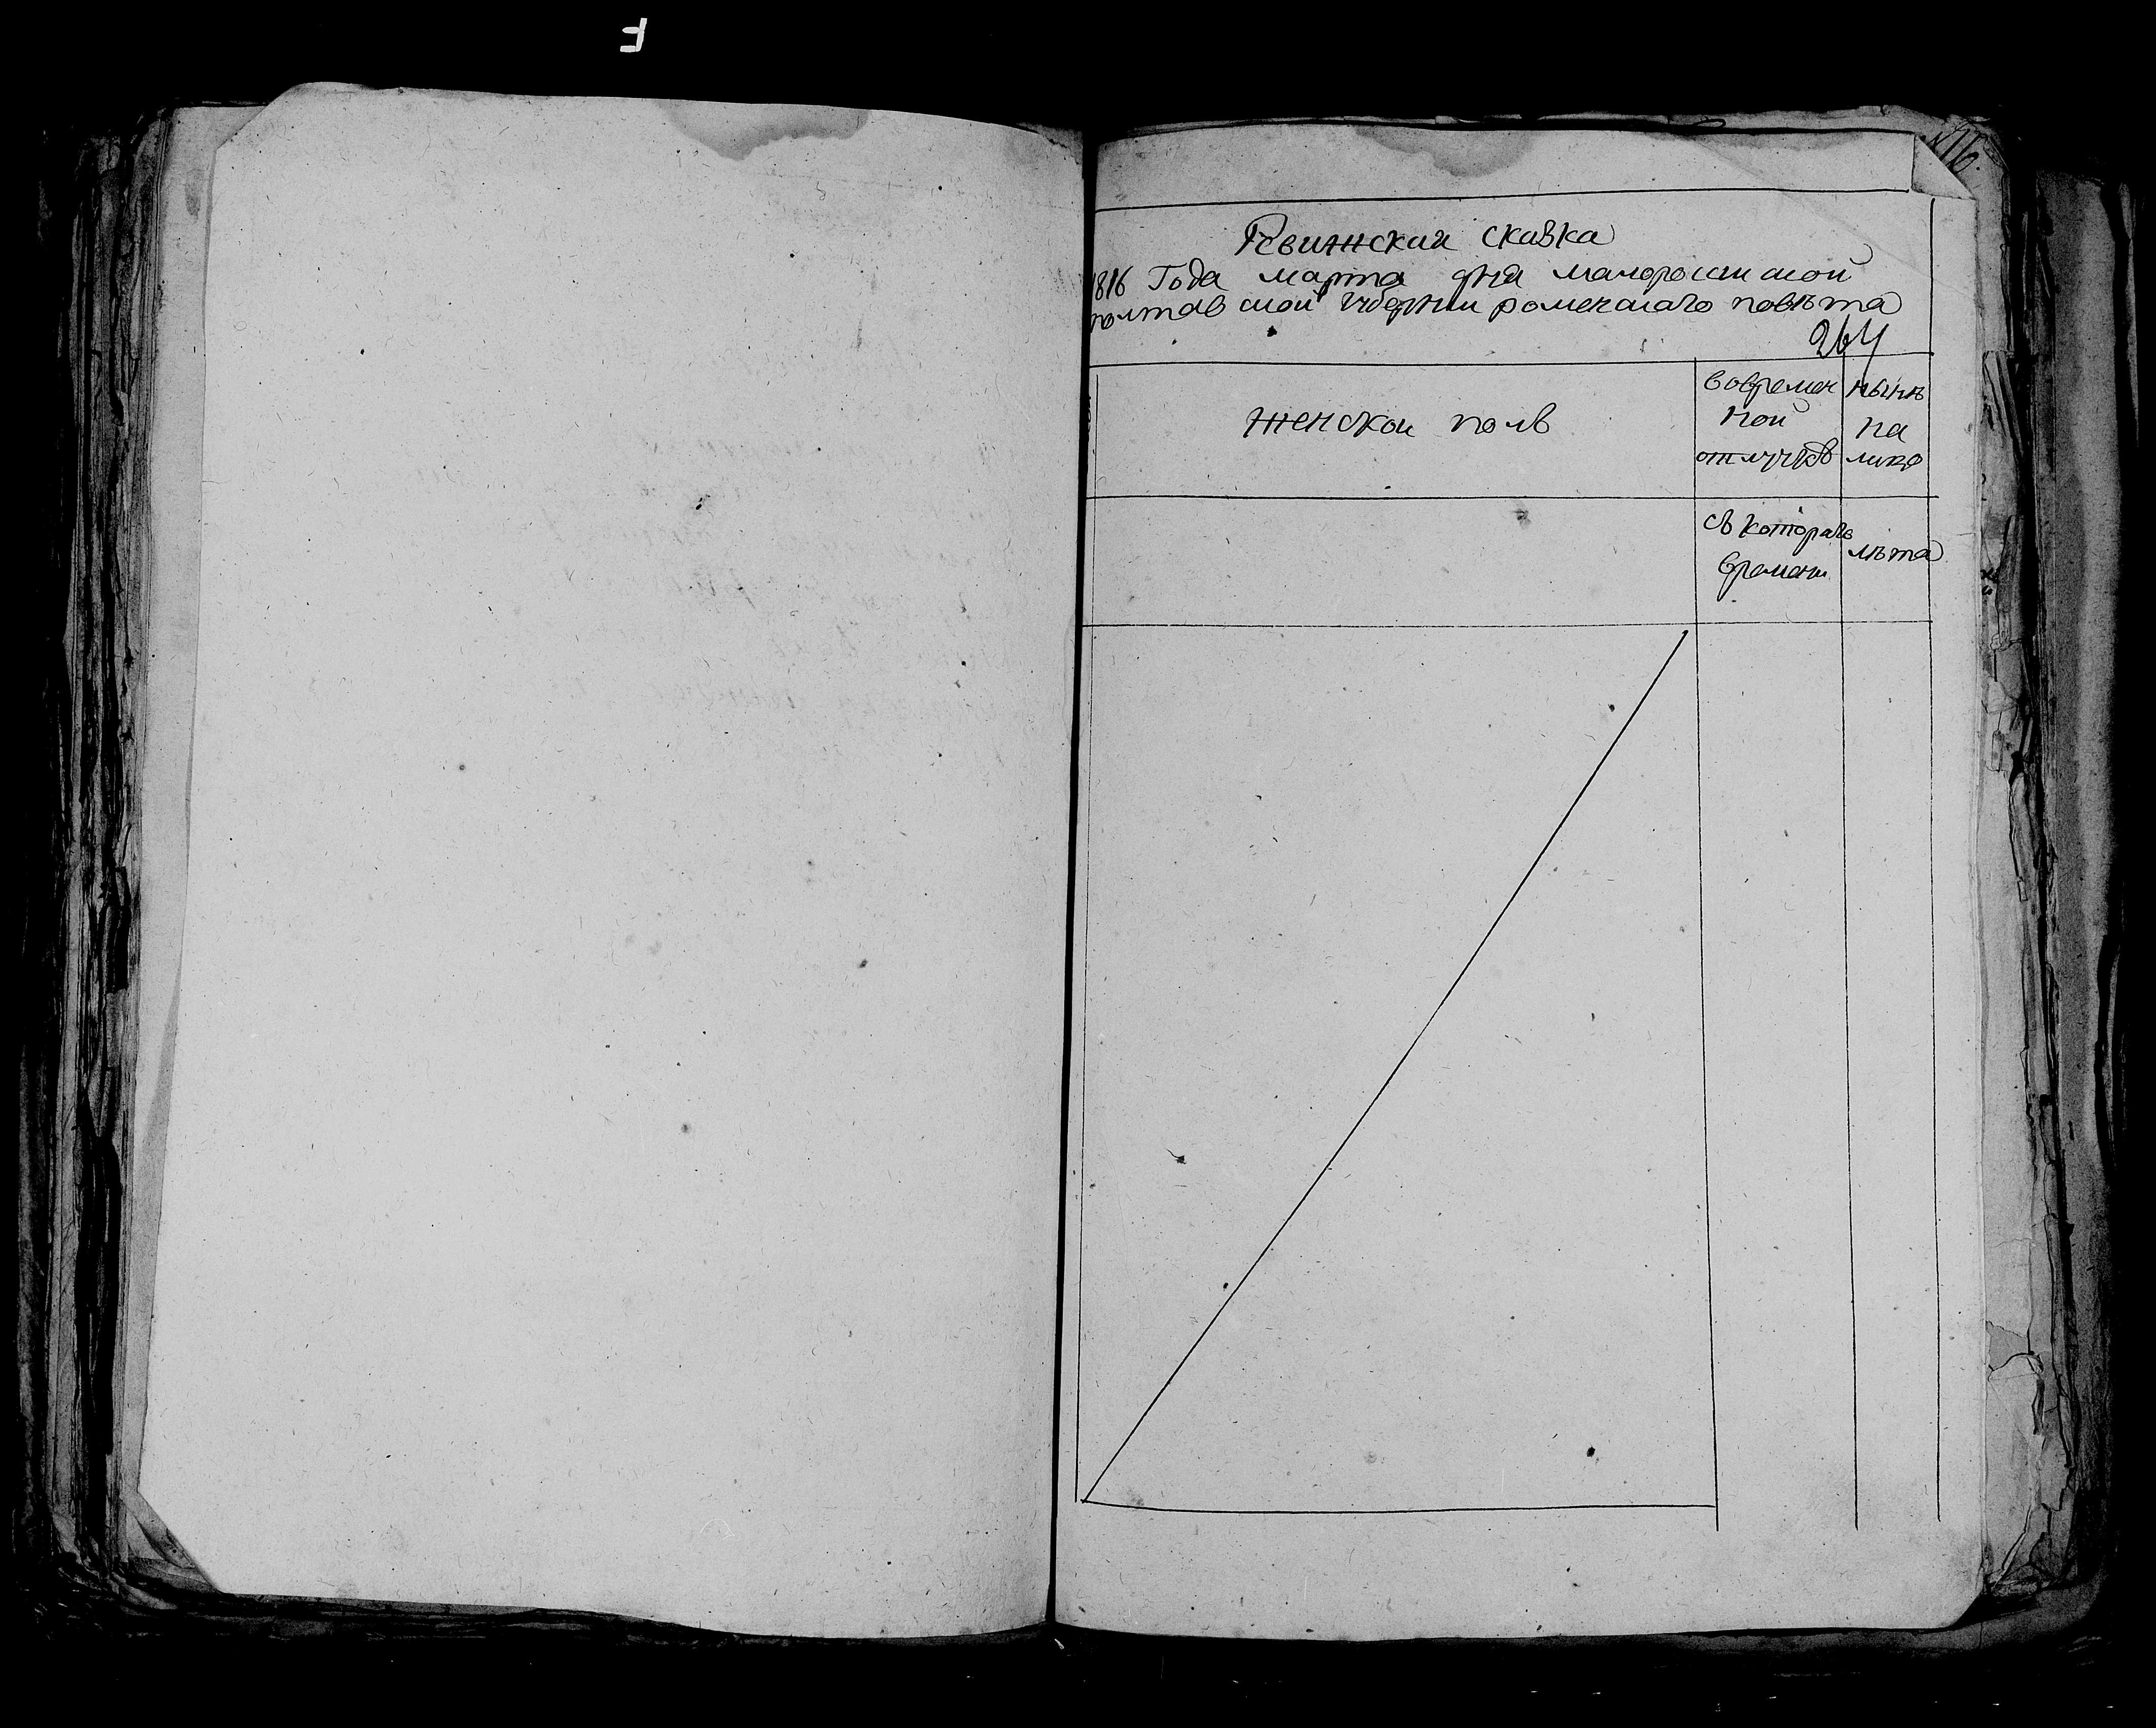 Ревижская сказка
1816 Года марта дня малоросииской
полтавской губернии роменскаго повѣта
264
женской полъ
вовремен
ной
отлучкѣ
нынѣ
на
лицо
съ котораго
времени
лѣта